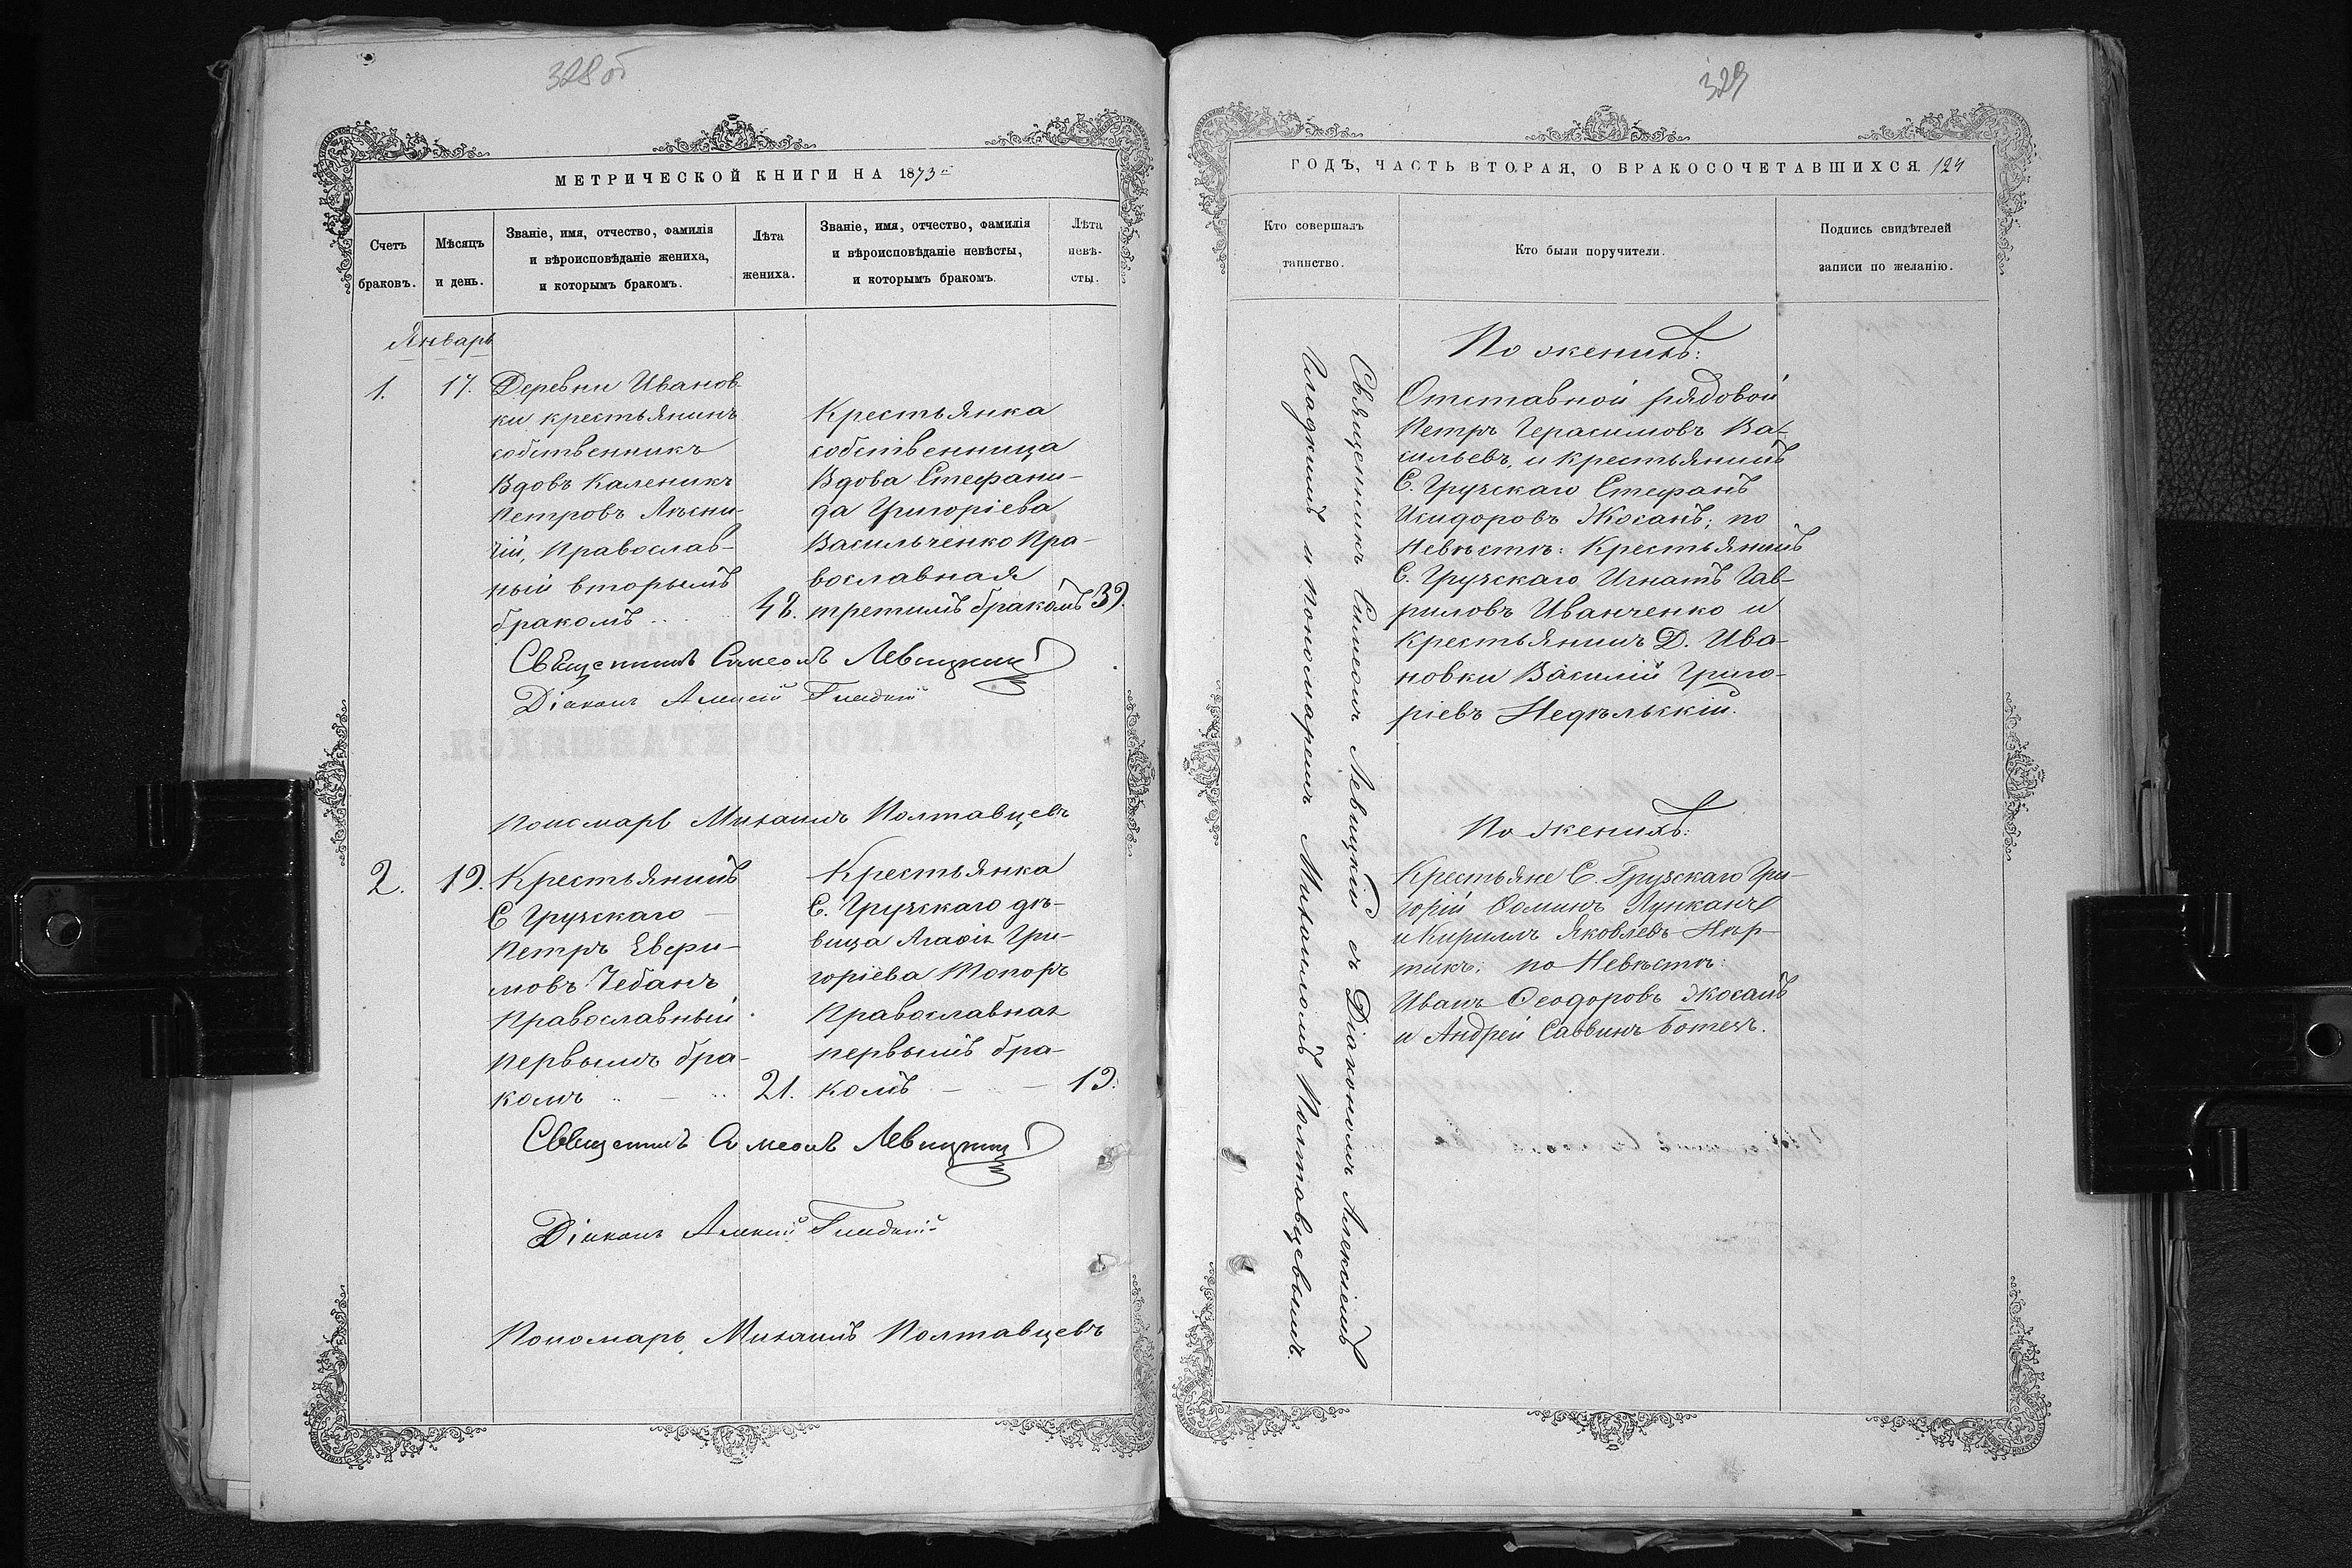 328 об
МЕТРИЧЕСКОЙ КНИГИ НА 1873 г
Счетъ
браковъ.
Мѣсяцъ
и день.
Званіе, имя, отчество, фамилія
и вѣроисповѣданіе жениха,
и которымъ бракомъ.
Лѣта
жениха.
Званіе, имя, отчество, фамилія
и вѣроисповѣданіе невѣсты,
и которымъ бракомъ.
Лѣта
невѣ-
сты.
Январь
1.
17.
Деревни Иванов-
ки крестьянинъ
собственникъ
Вдовъ Каленикъ
Петровъ
чій, Православ-
ный вторымъ
бракомъ
Крестьянка
собственница
Вдова Стефани-
да Григоріева
Васильченко Пра-
вославная
третимъ бракомъ 39.
Священникъ Симеонъ Левицкій
Діаконъ Алексій Гладкій
Пономарь Михаилъ Полтавцевъ
2.
19.
Крестьянинъ
С Грузскаго
Петръ Еври-
мовъ Чебанъ
Православный
первымъ бра-
комъ
21.
Крестьянка
С. Грузскаго дѣ-
вица Агафія Гри-
горіева Топоръ
Православная
первымъ бра-
комъ
19.
Священникъ Симеонъ Левицкій
Діаконъ Алексій Гладкій
Пономарь Михаилъ Полтавцевъ
329
ГОДЪ, ЧАСТЬ ВТОРАЯ, О БРАКОСОЧЕТАВШИХСЯ. 124
Кто совершалъ
таинство.
Кто были поручители.
Подпись свидѣтелей
записи по желанію.
Священникъ Симеонъ Левицкій съ Діакономъ Алексіемъ
Гладкимъ и пономаремъ Михаиломъ Полтавцевымъ.
По женихѣ:
Отставной рядовой
Петръ Герасимовъ Ва-
сильевъ, и крестьянинъ
С. Грузскаго Стефанъ
Исидоровъ Жосанъ; по
Невѣстѣ: Крестьянинъ
С. Грузскаго Игнатъ Гав-
риловъ Иванченко и
Крестьянинъ Д. Ива-
новки Василій Григо-
ріевъ Недѣльскій.
По женихѣ:
Крестьяне С. Грузскаго Гри-
горій Фоминъ Лупканъ
и Кириллъ Яковлевъ Чер-
тикъ; по Невѣстѣ:
Иванъ Феодоровъ Жосанъ
и Андрей Саввинъ Ботезъ.